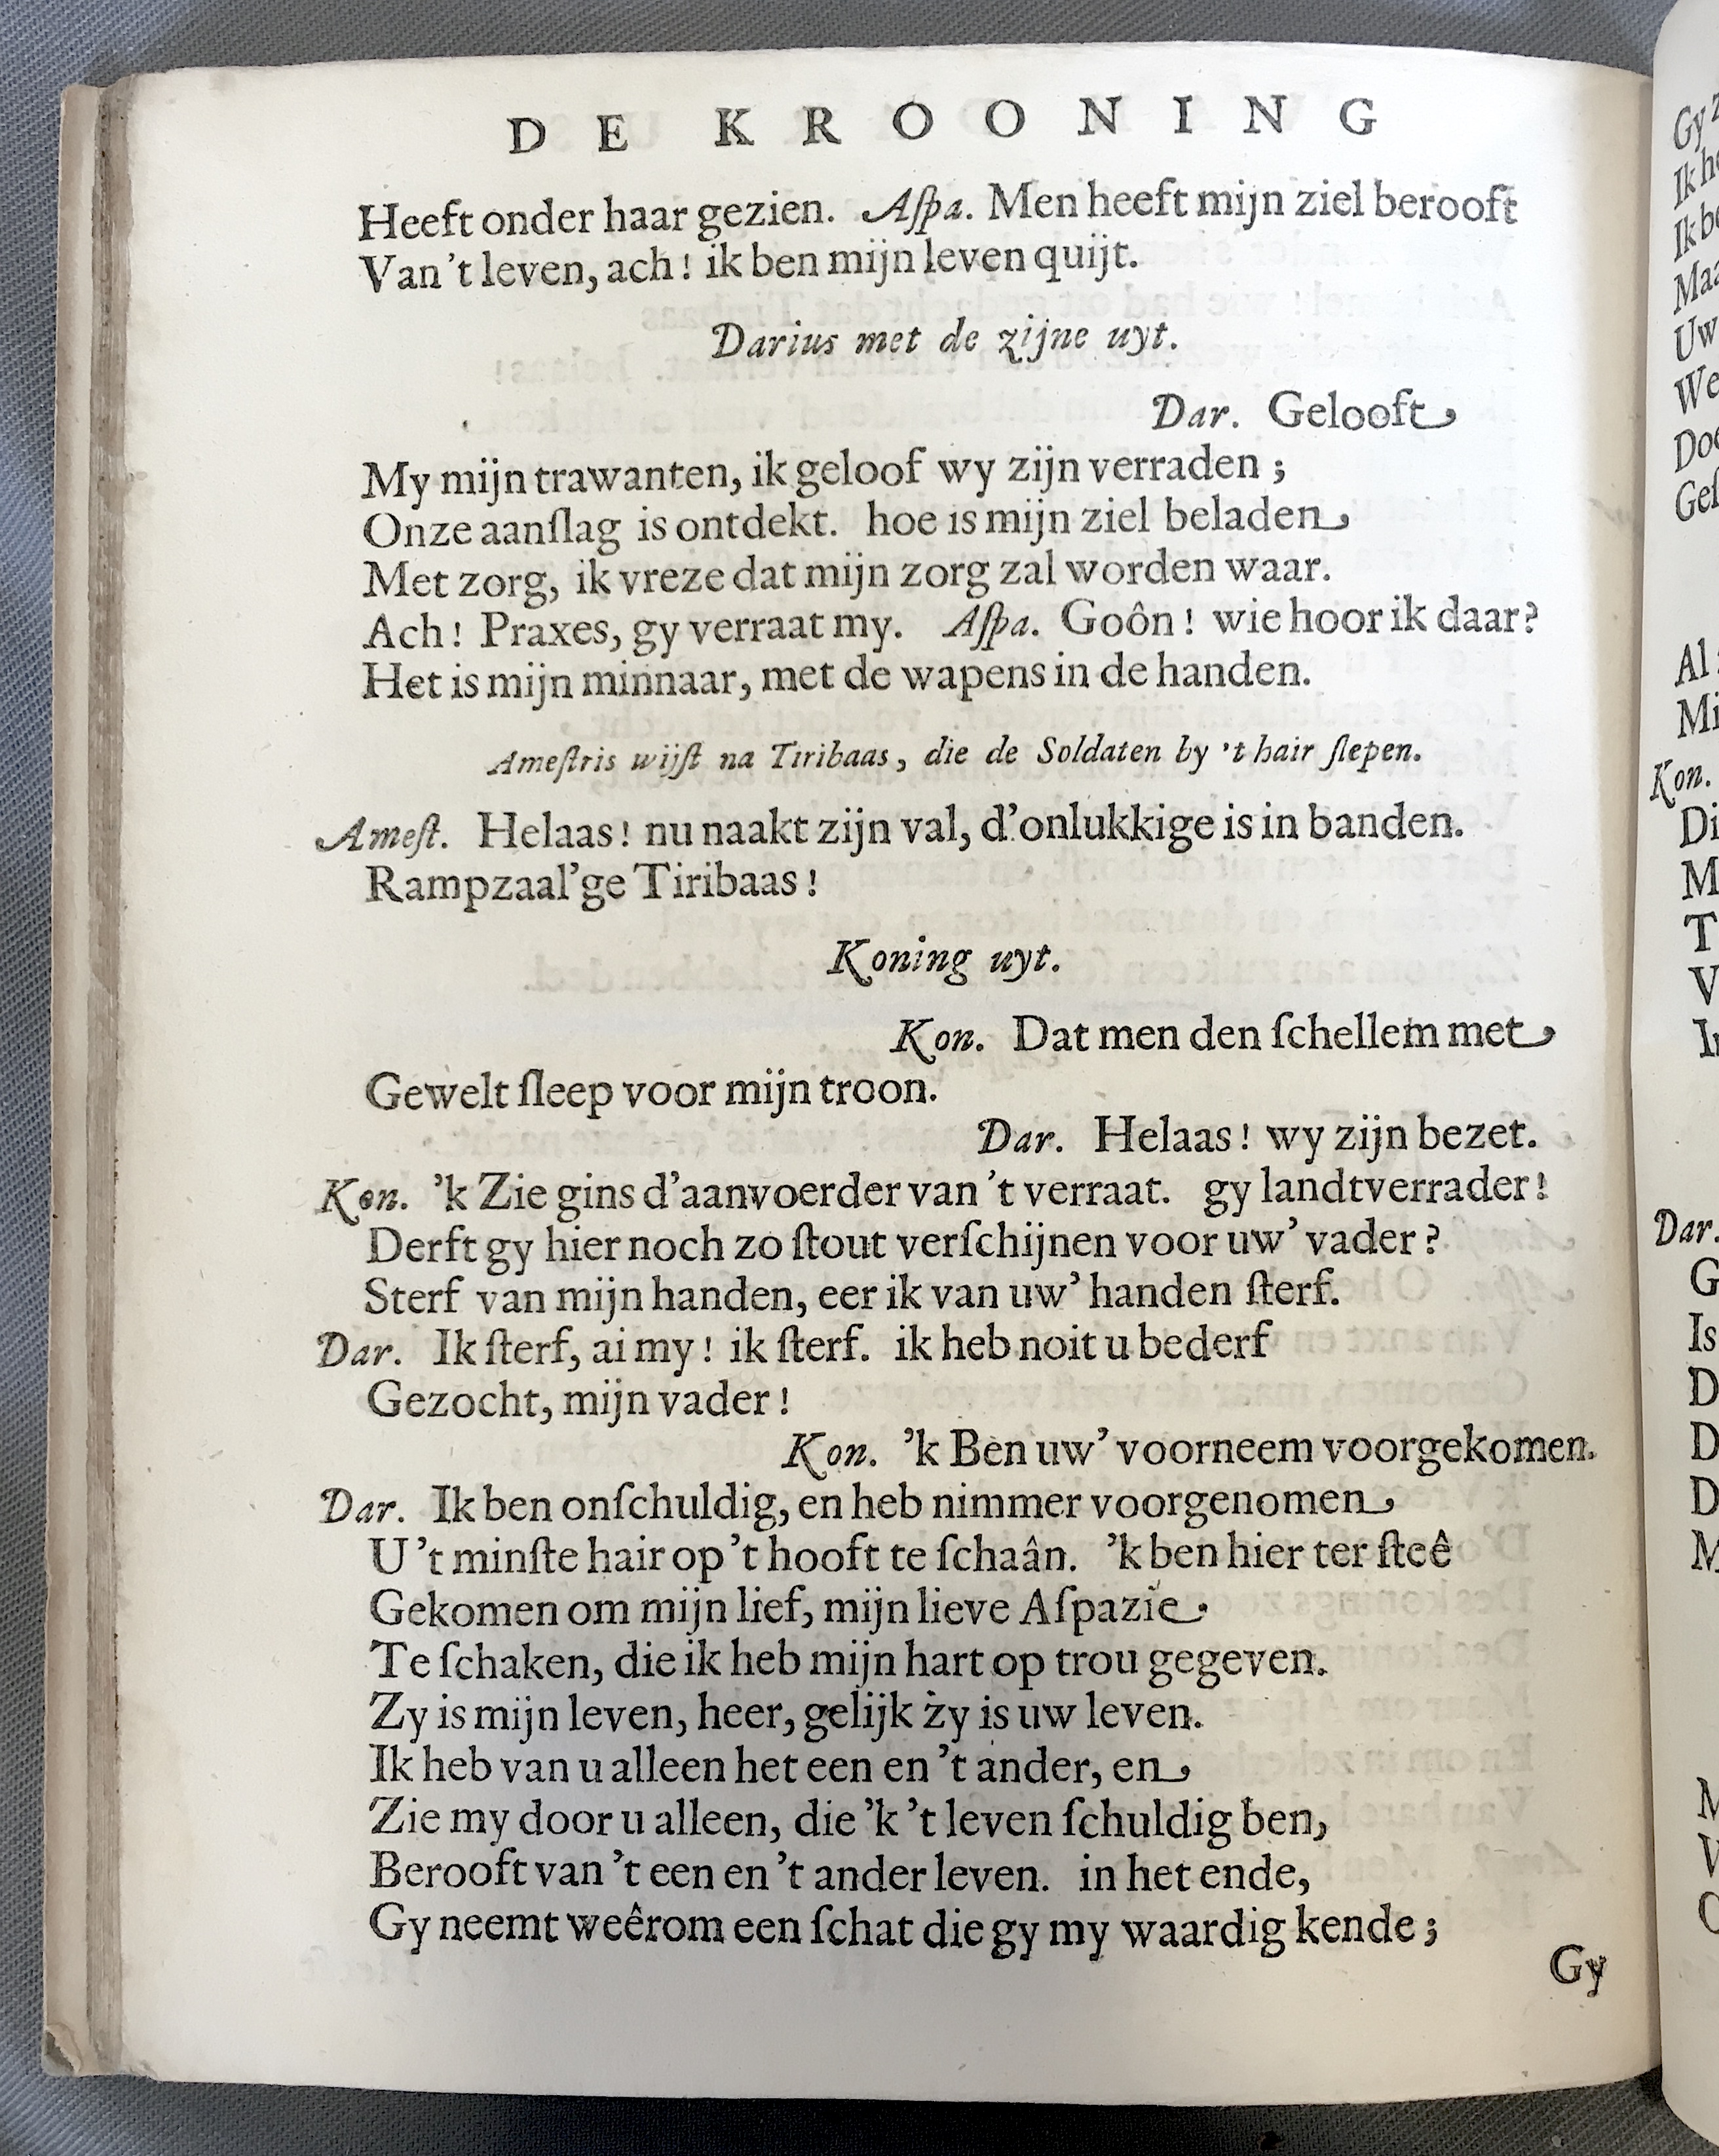 DE KROONING
Heeft onder haar gezien. Aſpa. Men heeft mijn ziel berooft
Van 't leven, ach! ik ben mijn leven quijt.
Darius met de zijne uyt.
Dar. Gelooft
My mijn trawanten, ik geloof wy zijn verraden;
Onze aanſlag is ontdekt. hoe is mijn ziel beladen
Met zorg, ik vreze dat mijn zorg zal worden waar.
Ach! Praxes, gy verraat my. Aſpa. Goôn! wie hoor ik daar?
Het is mijn minnaar, met de wapens in de handen.
Ameſtris wijſt na Tiribaas, die de Soldaten by 't hair ſlepen.
Ameſt. Helaas! nu naakt zijn val, d'onlukkige is in banden.
Rampzaal'ge Tiribaas!
Koning uyt.
Kon. Dat men den ſchellem met
Gewelt ſleep voor mijn troon.
Dar. Helaas! wy zijn bezet.
Kon. 'k Zie gins d'aanvoerder van 't verraat. gy landtverrader!
Derft gy hier noch zo ſtout verſchijnen voor uw' vader?
Sterf van mijn handen, eer ik van uw' handen ſterf.
Dar. Ik ſterf, ai my! ik ſterf. ik heb noit u bederf
Gezocht, mijn vader!
Kon. 'k Ben uw' voorneem voorgekomen.
Dar. Ik ben onſchuldig, en heb nimmer voorgenomen
U 't minſte hair op 't hooft te ſchaân. 'k ben hier ter ſteê
Gekomen om mijn lief, mijn lieve Aſpazie
Te ſchaken, die ik heb mijn hart op trou gegeven.
Zy is mijn leven, heer, gelijk zy is uw leven.
Ik heb van u alleen het een en 't ander, en
Zie my door u alleen, die 'k 't leven ſchuldig ben,
Berooft van 't een en 't ander leven. in het ende,
Gy neemt weêrom een ſchat die gy my waardig kende;
Gy